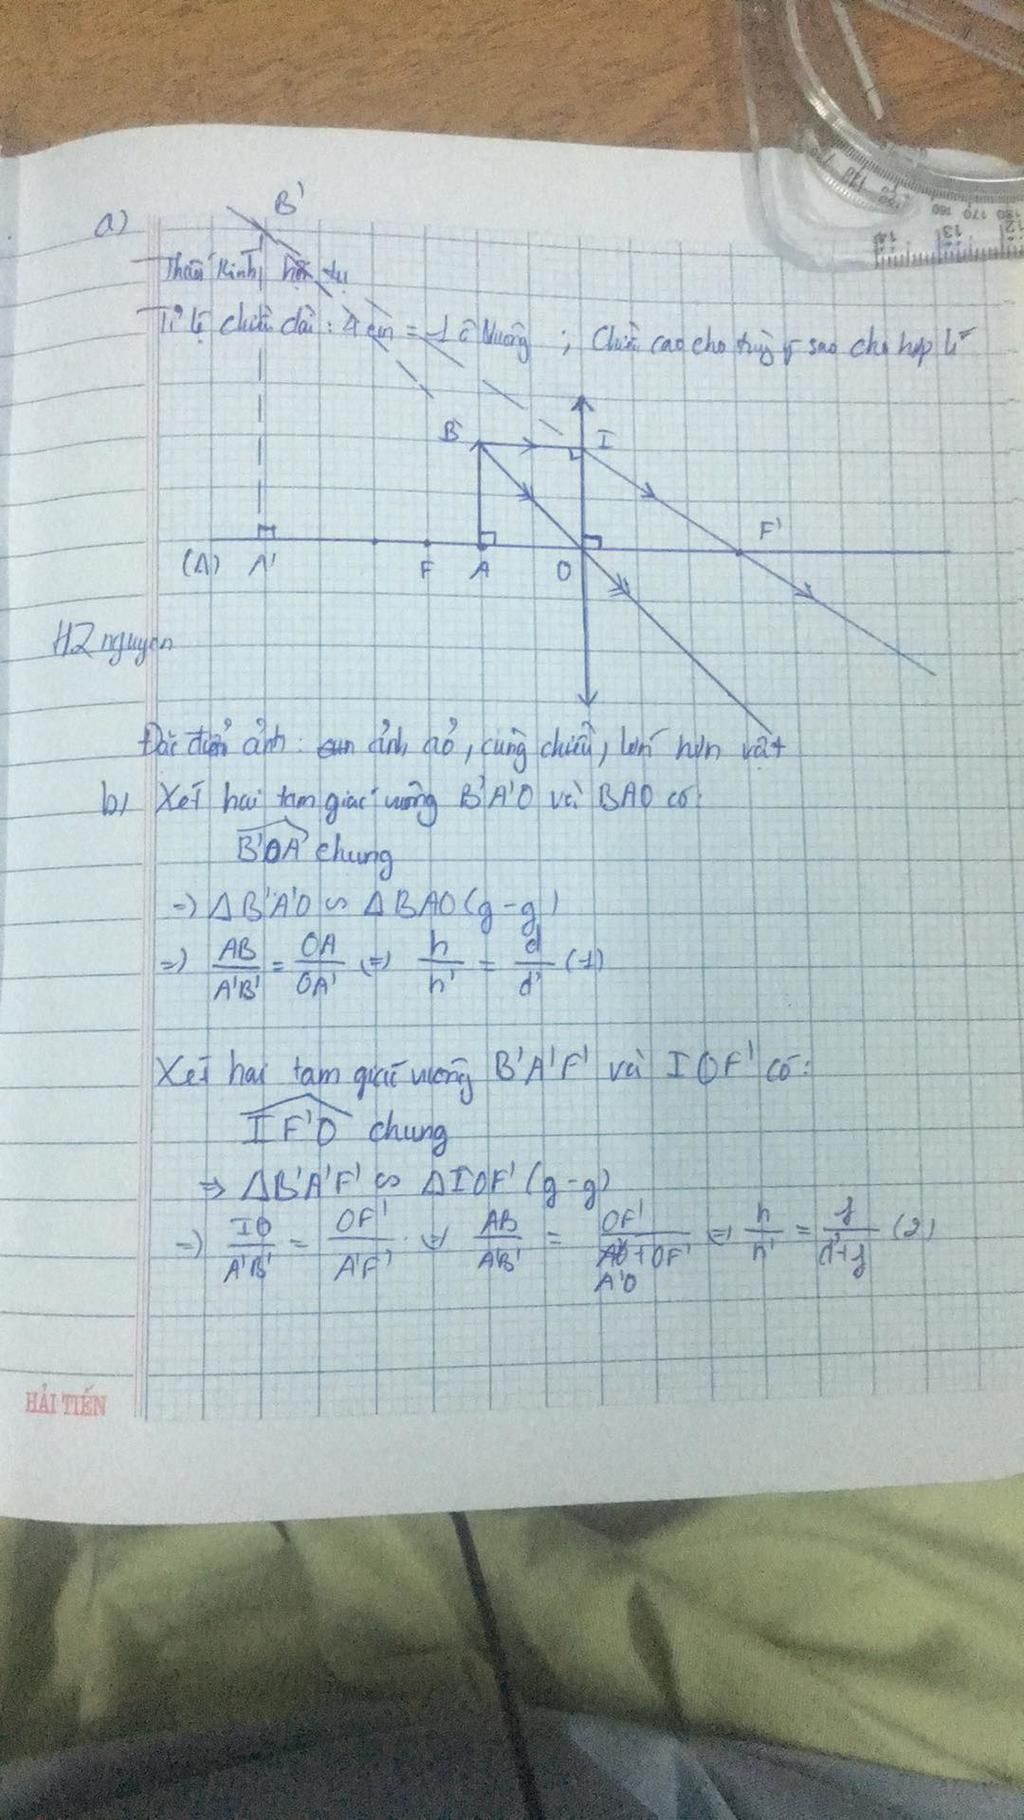 a)
B'
Thấu kính hội tụ
Tỉ lệ chiều dài: 4 cm = 1 ô vuông ; Chiều cao cho tùy ý sao cho hợp lí
B I
F'
(Δ) A' F A O
H2 nguyen
Đặc điểm ảnh: ảnh ảo, cùng chiều, lớn hơn vật
b) Xét hai tam giác vuông B'A'O và BAO có:
B'OA' chung
=) ΔB'A'O ∽ ΔBAO (g-g)
=) AB/A'B' = OA/OA' (=) h/h' = d/d' (1)
Xét hai tam giác vuông B'A'F' và IOF' có:
IF'O chung
=> ΔB'A'F' ∽ ΔIOF' (g-g)
=) IO/A'B' = OF'/A'F' (=) AB/A'B' = OF'/A'O+OF' (=) h/h' = f/d'+f (2)
HẢI TIẾN
12 13 14
180 170 160